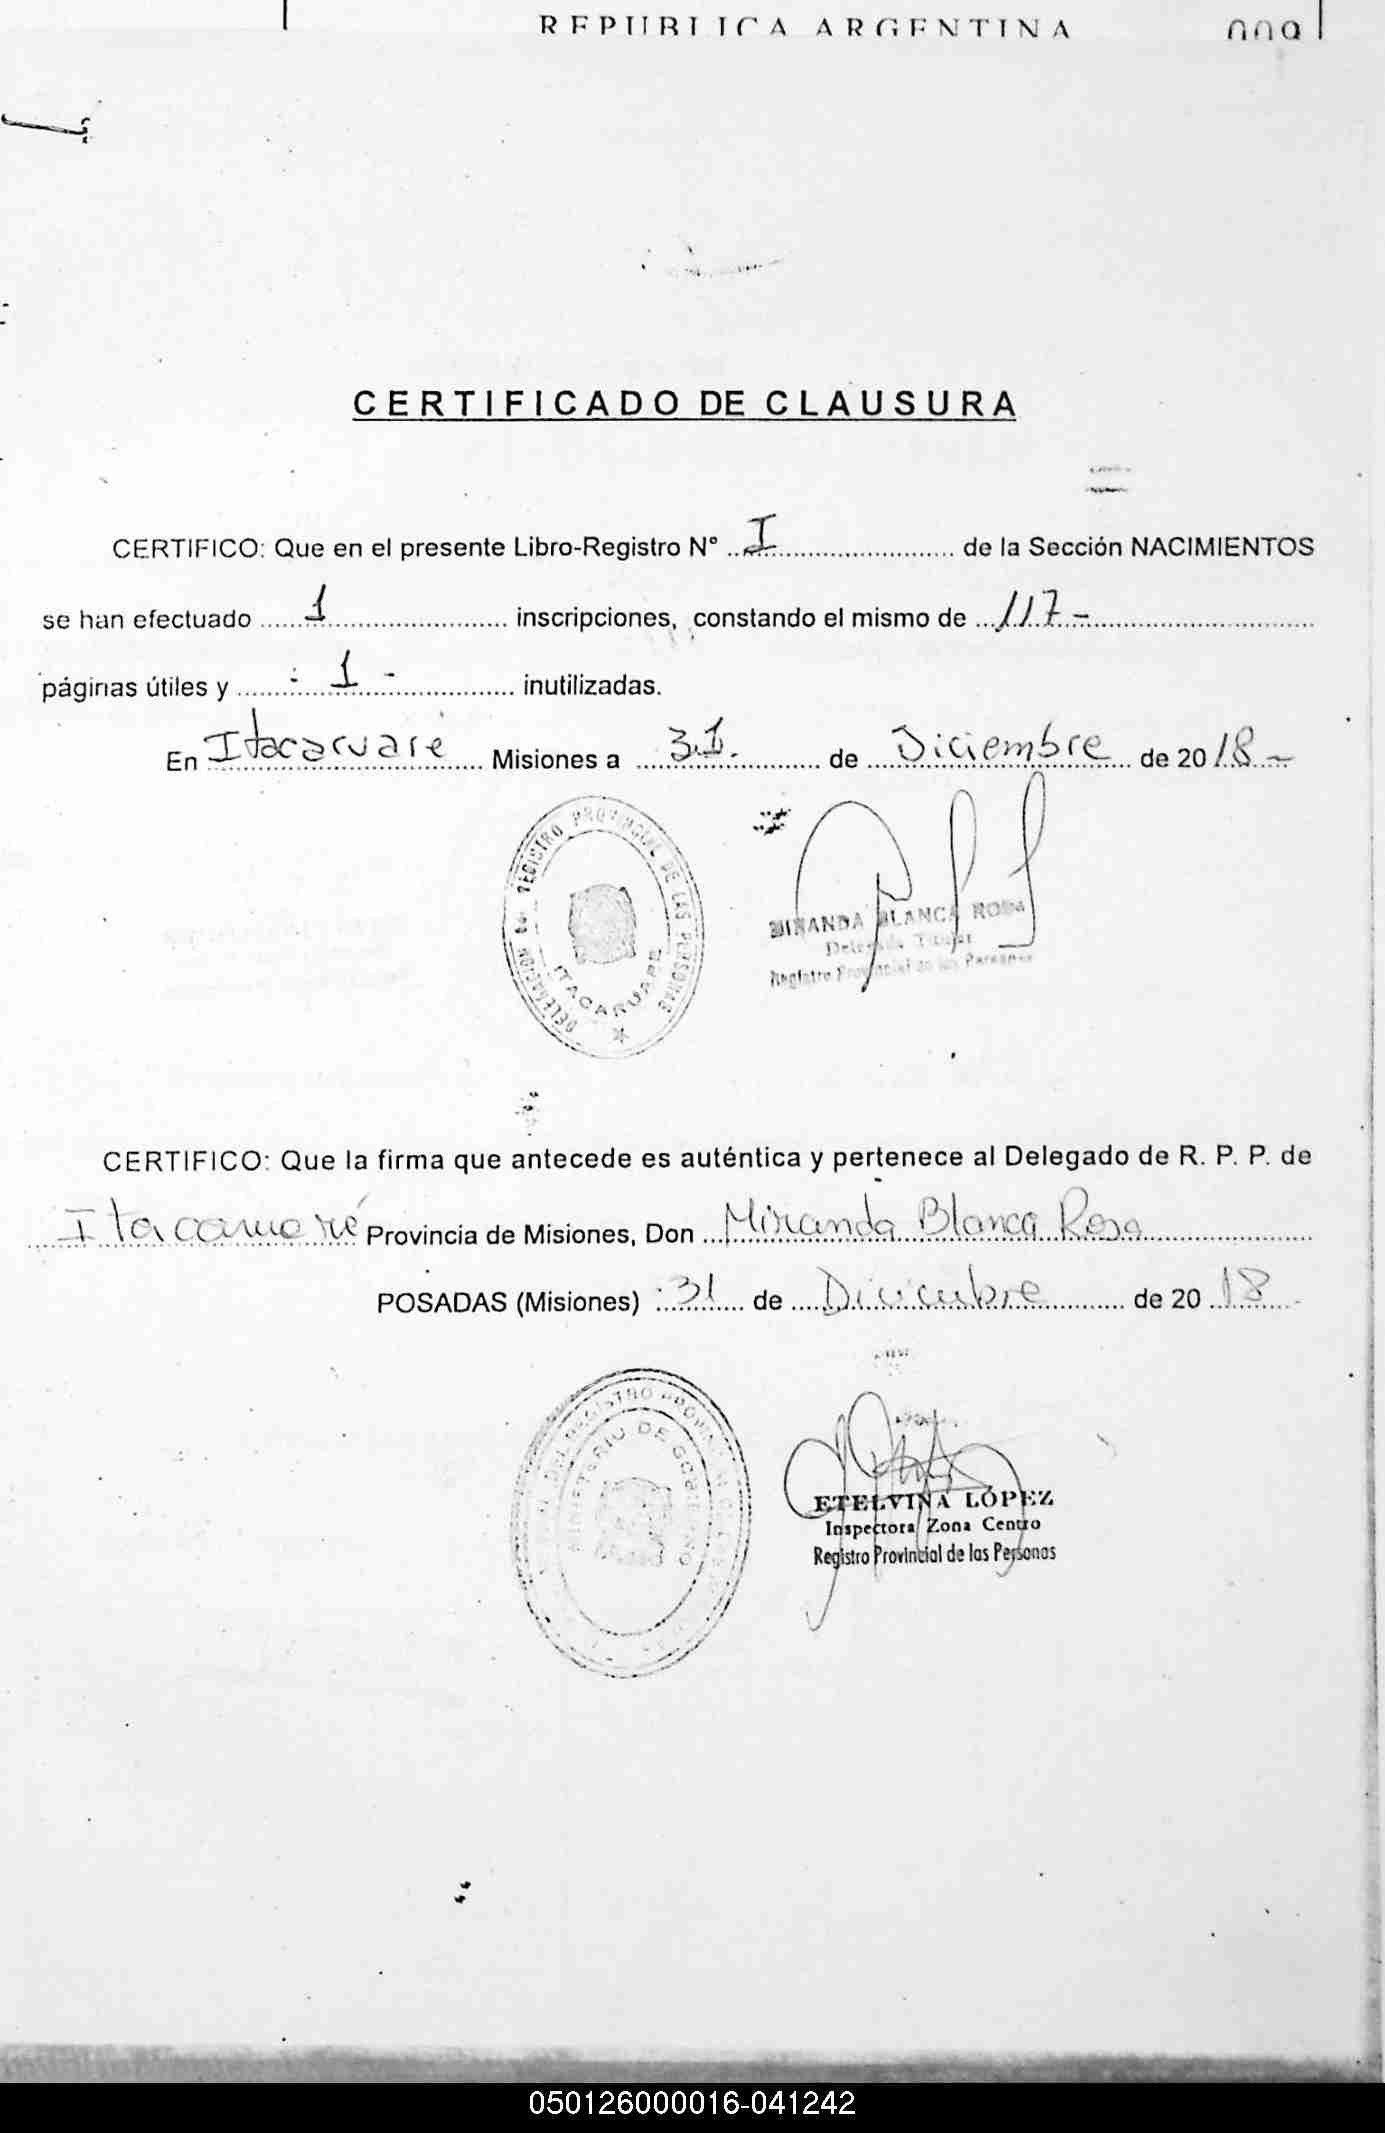 REPUBLICA ARGENTINA 009
CERTIFICADO DE CLAUSURA
CERTIFICO: Que en el presente Libro-Registro N° I de la Sección NACIMIENTOS
se han efectuado 1 inscripciones, constando el mismo de 117-
páginas útiles y - 1 - inutilizadas.
En Itacaruaré Misiones a 31. de Diciembre de 2018-
DELEGACION DEL REGISTRO PROVINCIAL DE LAS PERSONAS
ITACARUARE
MIRANDA BLANCA ROSA
Delegada Titular
Registro Provincial de las Personas
CERTIFICO: Que la firma que antecede es auténtica y pertenece al Delegado de R. P. P. de
Itacaruaré Provincia de Misiones, Don Miranda Blanca Rosa
POSADAS (Misiones) 31 de Diciembre de 2018
DEL REGISTRO PROVINCIAL DE LAS
MINISTERIO DE GOBIERNO
ETELVINA LÓPEZ
Inspectora Zona Centro
Registro Provincial de las Personas
050126000016-041242